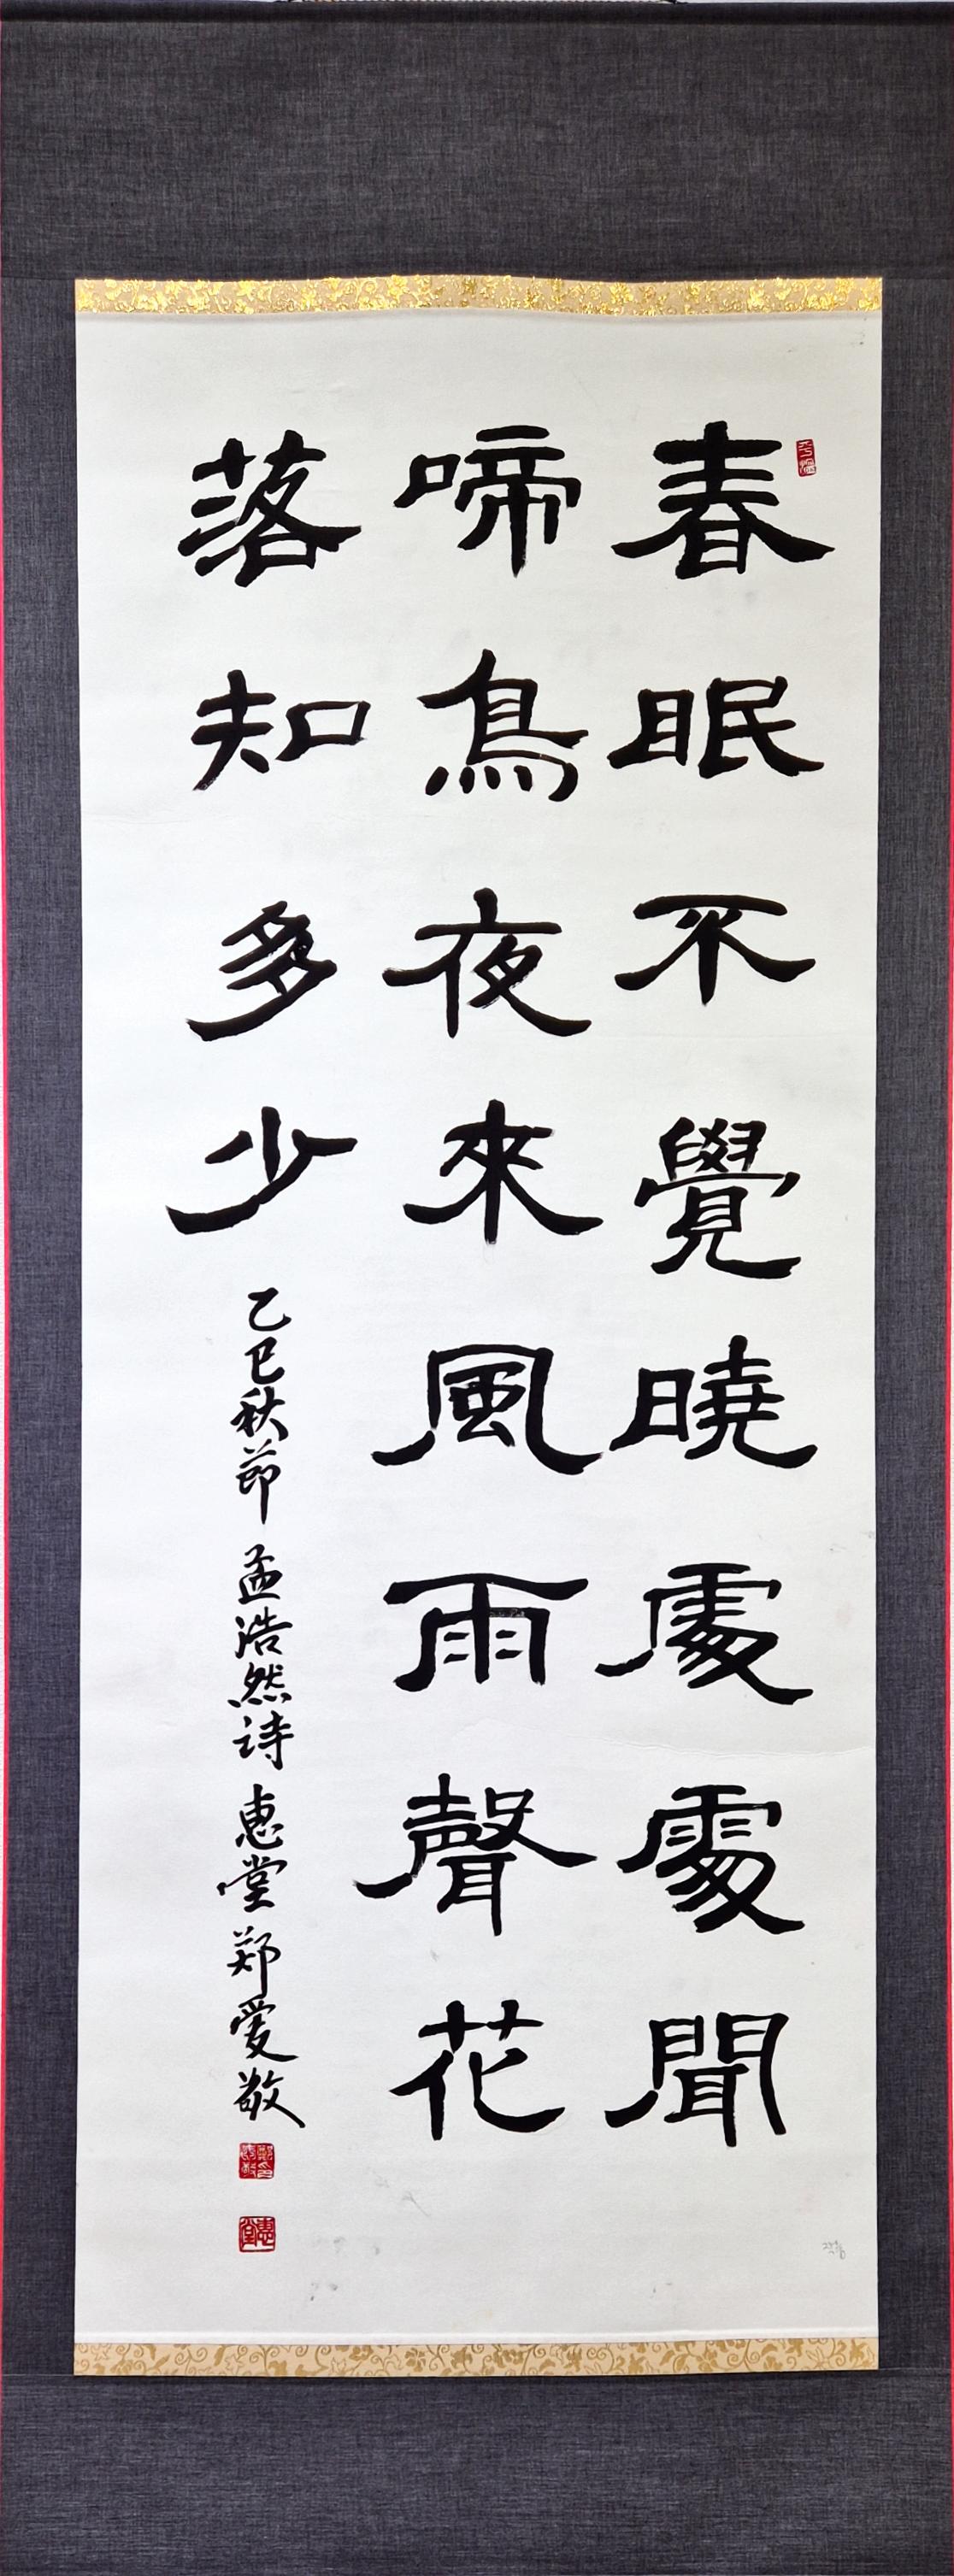 春眠不覺曉處處聞
啼鳥夜來風雨聲花
落知多少
乙巳秋節 孟浩然詩 惠堂 郑爱敬
惠堂